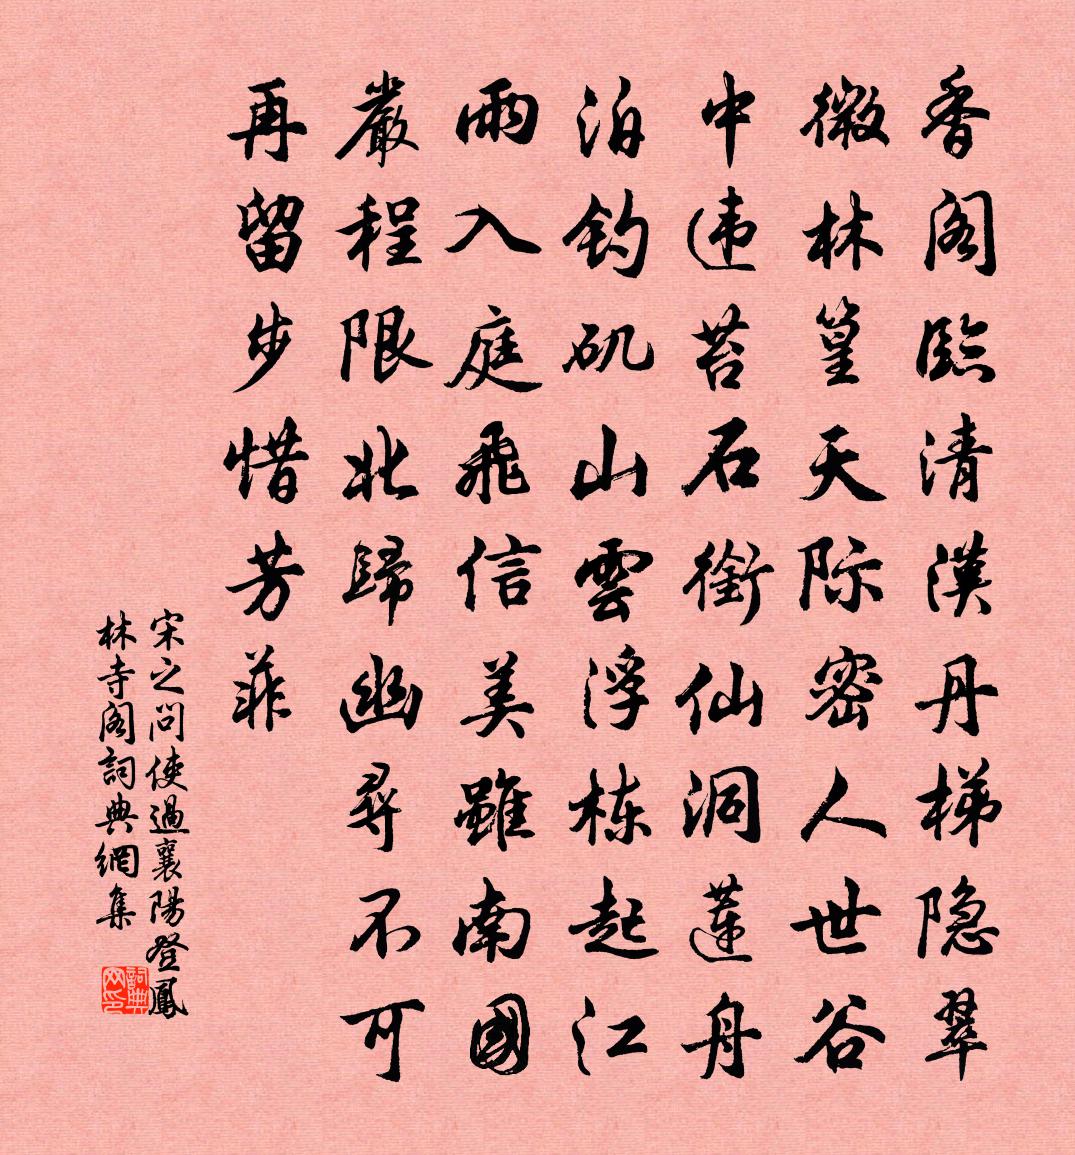 香閣臨清漢丹梯隐翠
微林篁天际密人世谷
中违苔石銜仙洞蓮舟
泊钓矶山雲浮栋起江
雨入庭飛信美雖南國
嚴程限北歸幽尋不可
再留步惜芳菲
宋之问使過襄陽登鳳
林寺閣詞典網集
詞典
网印